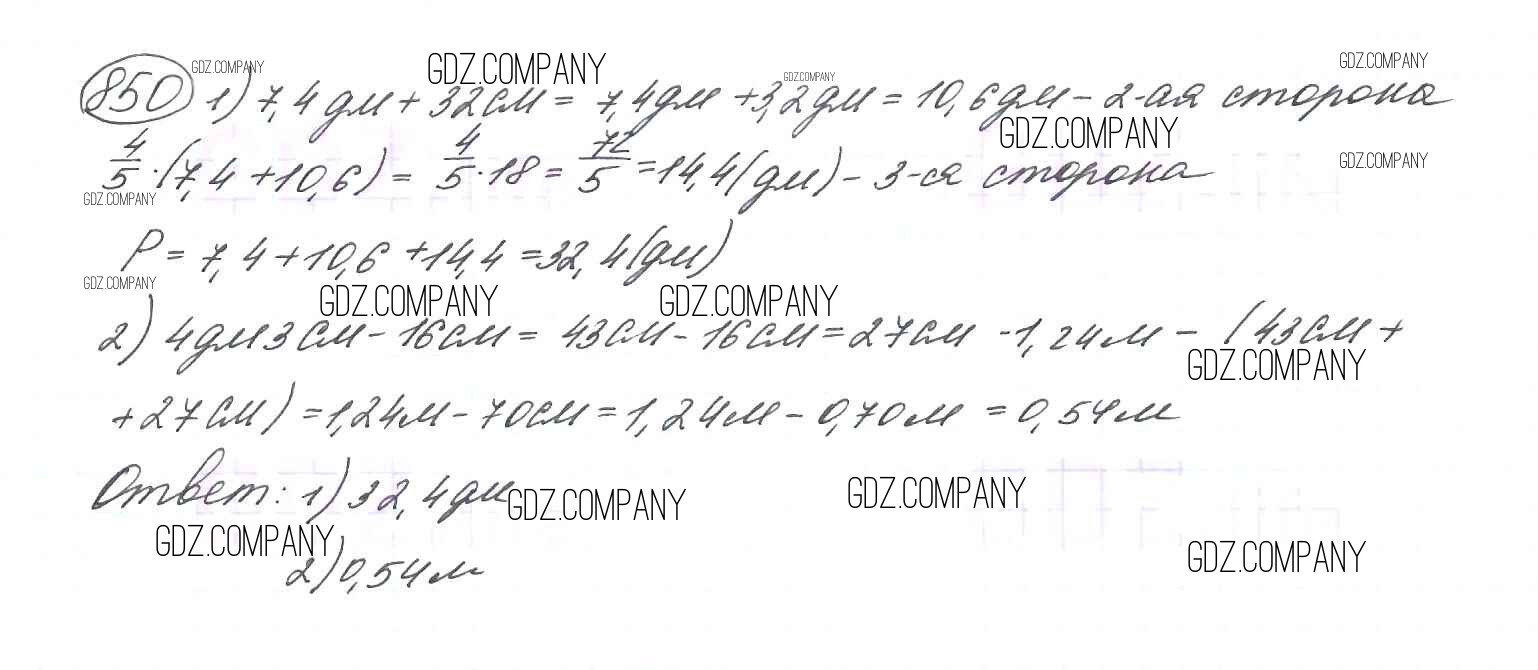 GDZ.COMPANY GDZ.COMPANY GDZ.COMPANY GDZ.COMPANY
850 1) 7,4 дм + 32 см = 7,4 дм + 3,2 дм = 10,6 дм - 2-ая сторона
GDZ.COMPANY
4/5 · (7,4 + 10,6) = 4/5 · 18 = 72/5 = 14,4 (дм) - 3-ся сторона
GDZ.COMPANY GDZ.COMPANY
P = 7,4 + 10,6 + 14,4 = 32,4 (дм)
GDZ.COMPANY GDZ.COMPANY GDZ.COMPANY
2) 4 дм 3 см - 16 см = 43 см - 16 см = 27 см - 1,24 м - (43 см +
GDZ.COMPANY
+ 27 см) = 1,24 м - 70 см = 1,24 м - 0,70 м = 0,54 м
Ответ: 1) 32,4 дм
GDZ.COMPANY GDZ.COMPANY
GDZ.COMPANY GDZ.COMPANY
2) 0,54 м